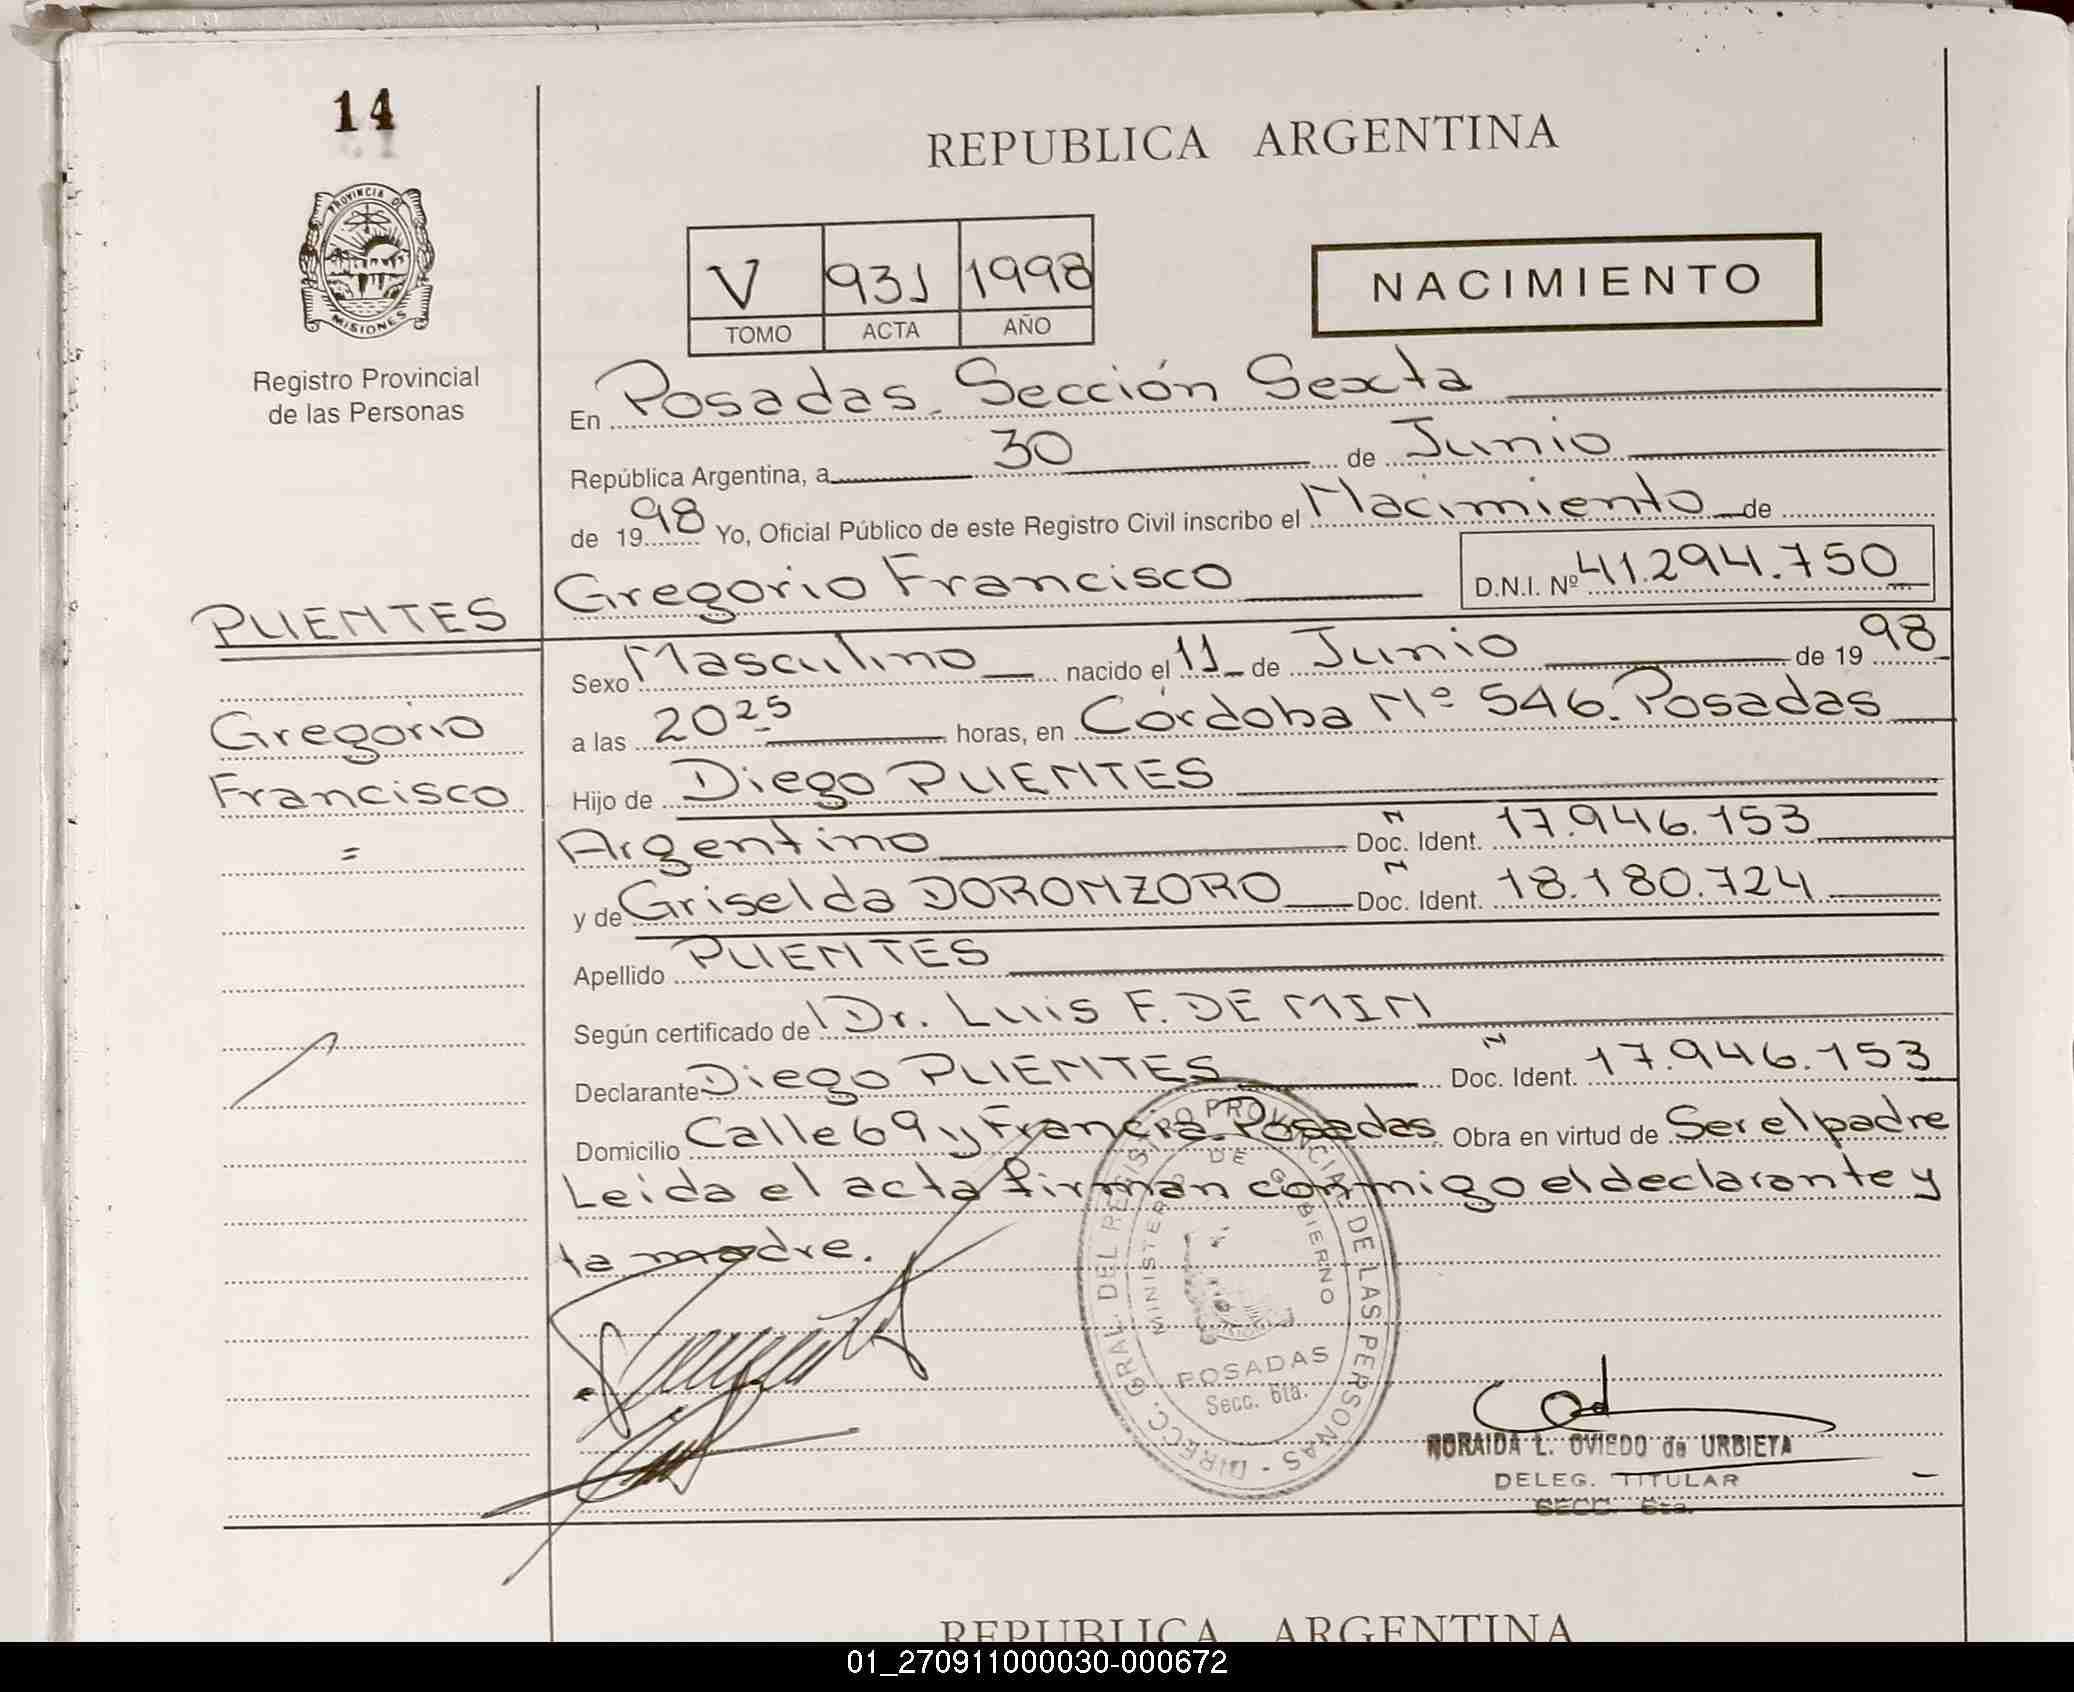 14
PROVINCIA DE
MISIONES
Registro Provincial
de las Personas
REPUBLICA ARGENTINA
V 931 1998
TOMO ACTA AÑO
NACIMIENTO
En Posadas. Sección Sexta
República Argentina, a 30 de Junio
de 1998 Yo, Oficial Público de este Registro Civil inscribo el Nacimiento de
Gregorio Francisco D.N.I. Nº 41.294.750
PUENTES
Sexo Masculino nacido el 11 de Junio de 1998
a las 20 25 horas, en Córdoba Nº 546. Posadas
Gregorio
Francisco
=
Hijo de Diego PUENTES
Argentino Doc. Ident. N 17.946.153
y de Griselda DORONZORO Doc. Ident. N 18.180.724
Apellido PUENTES
Según certificado de Dr. Luis F. DE MIN
Declarante Diego PUENTES Doc. Ident. N 17.946.153
Domicilio Calle 69 y Francia. Posadas Obra en virtud de Ser el padre
Leida el acta firman conmigo el declarante y
la madre.
DIRECC. GRAL. DEL REGISTRO PROVINCIAL DE LAS PERSONAS -
MINISTERIO DE GOBIERNO
POSADAS
Secc. 6ta.
NORAIDA L. OVIEDO de URBIETA
DELEG. TITULAR
SECC. 6ta.
REPUBLICA ARGENTINA
01_270911000030-000672